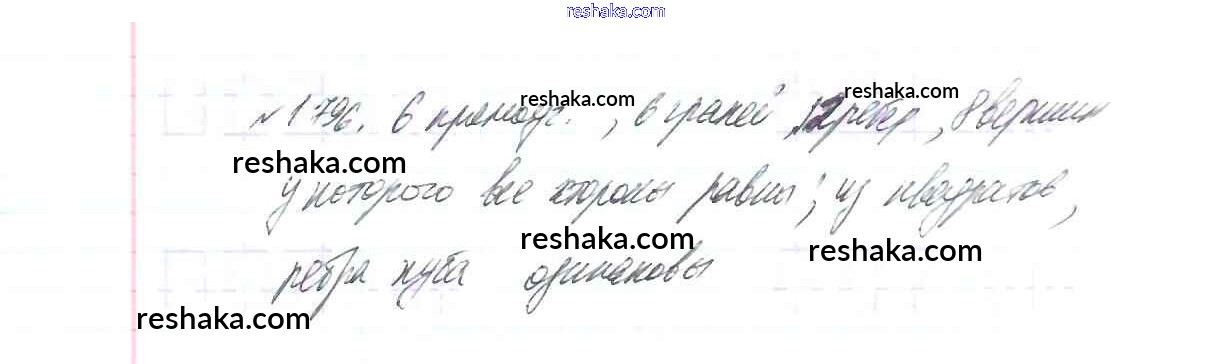 reshaka.com
№1796. 6 прямоуг., 6 граней, 12 ребер, 8 вершин
reshaka.com
reshaka.com
reshaka.com
у которого все стороны равны; из квадратов,
reshaka.com
reshaka.com
ребра куба одинаковы
reshaka.com